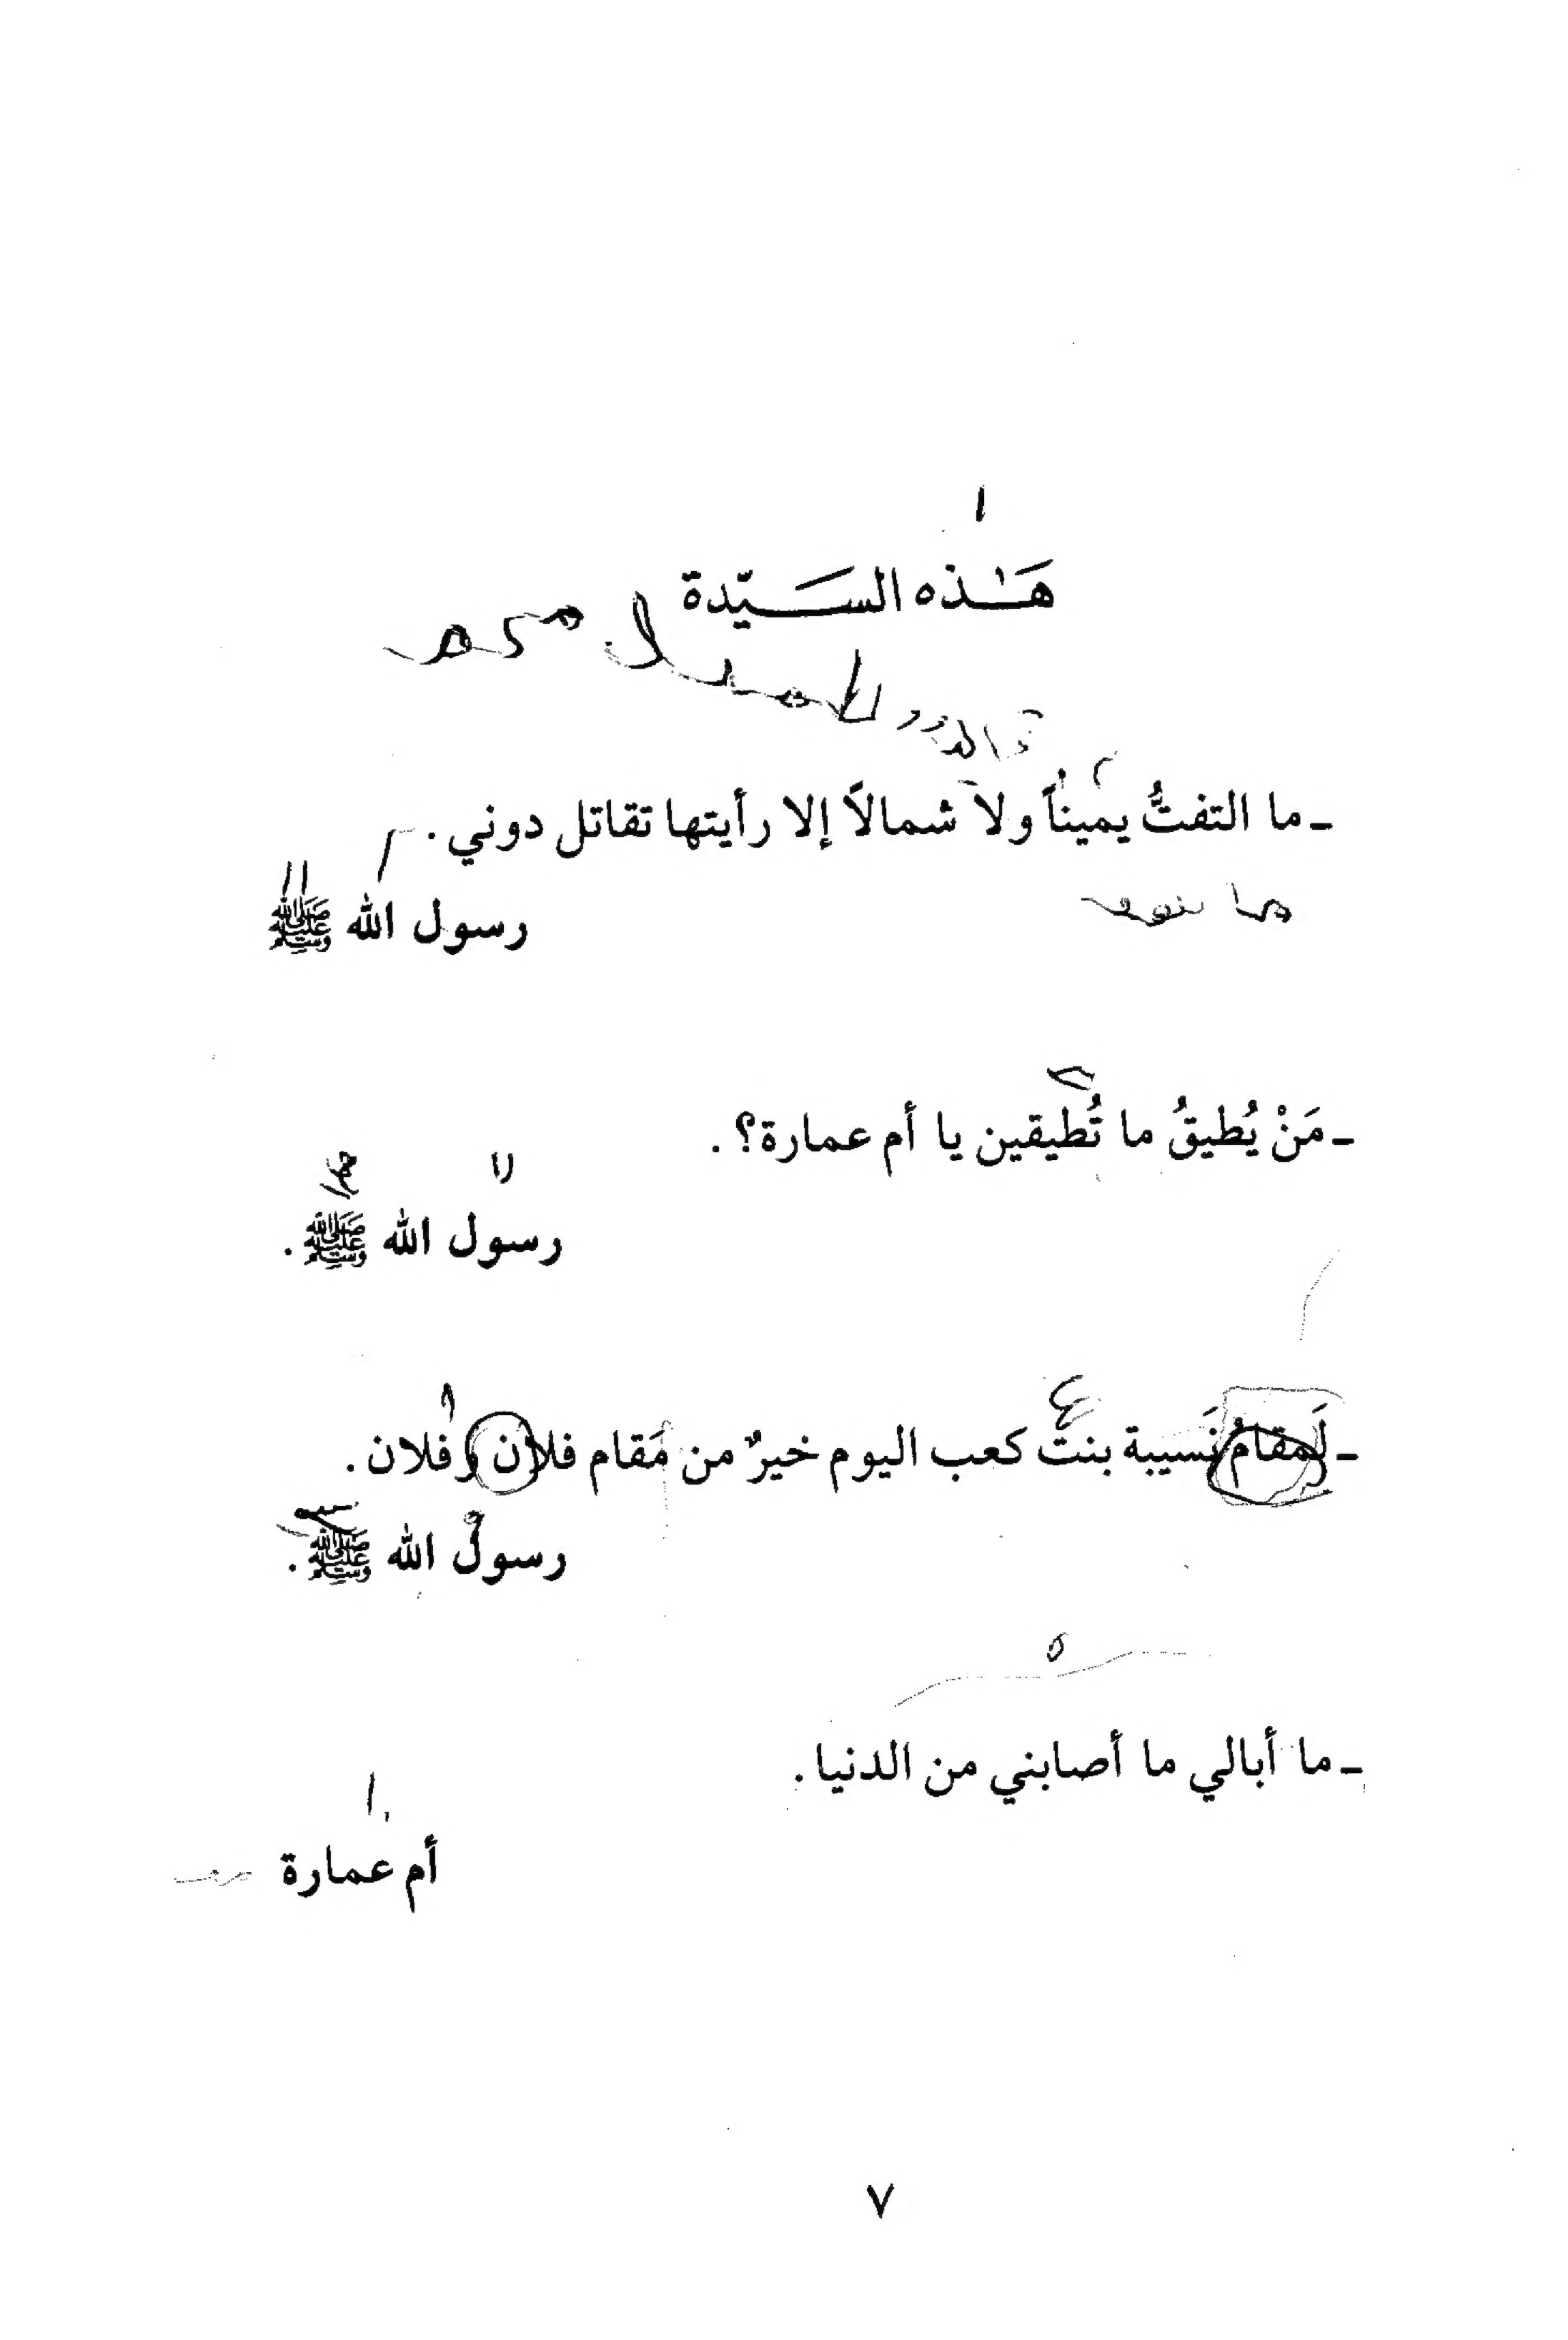 هَـٰذه السَـيّدة
ـ ما التفتُّ يميناً ولا شمالاً إلا رأيتها تقاتل دوني .
رسول الله ﷺ
ـ مَنْ يُطيقُ ما تُطيقين يا أم عمارة؟ .
رسول الله ﷺ .
ـ لَمقامُ نَسيبة بنت كعب اليوم خيرٌ من مَقام فلان وفلان .
رسول الله ﷺ .
ـ ما أبالي ما أصابني من الدنيا .
أم عمارة
٧